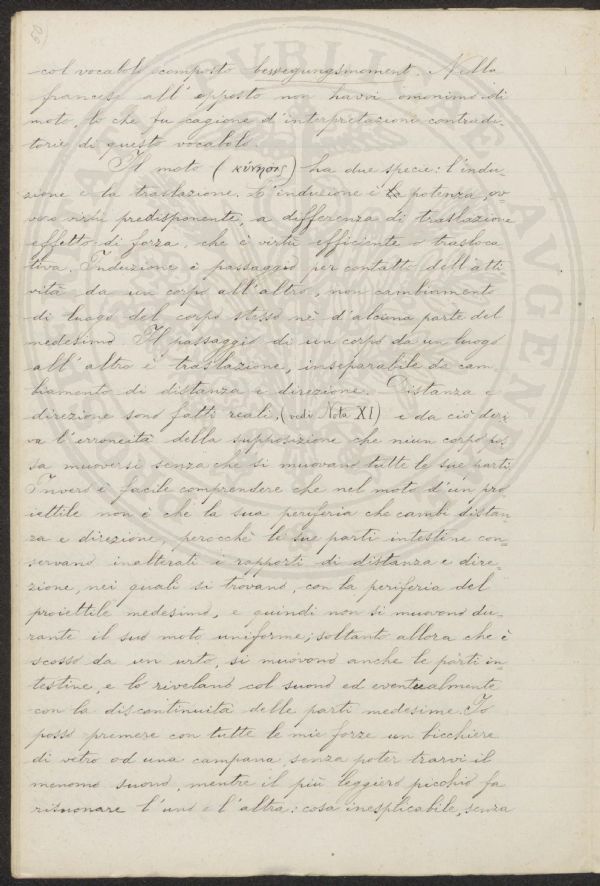 50
col vocabolo composto bewegungsmoment. Nella
francese all' opposto non havvi omonimo di
moto, lo che fu cagione d'interpretazioni contradi-
torie di questo vocabolo.
Il moto (κίνησις) ha due specie: l'indu-
zione e la traslazione. L'induzione è la potenza, ov-
vero virtù predisponente, a differenza di traslazione
effetto di forza, che è virtù efficiente o trasloca-
tiva. Induzione è passaggio per contatto dell'atti-
vità da un corpo all'altro, non cambiamento
di luogo del corpo stesso nè d'alcuna parte del
medesimo. Il passaggio di un corpo da un luogo
all'altro è traslazione, inseparabile da cam-
biamento di distanza e direzione. Distanza e
direzione sono fatti reali, (vedi Nota XI) e da ciò deri-
va l'erroneità della supposizione che niun corpo pos-
sa muoversi senza che si muovano tutte le sue parti.
Invero è facile comprendere che nel moto d'un pro-
iettile non è che la sua periferia che cambi distan-
za e direzione, perocchè le sue parti intestine con-
servano inalterati i rapporti di distanza e dire-
zione, nei quali si trovano, con la periferia del
proiettile medesimo, e quindi non si muovono du-
rante il suo moto uniforme; soltanto allora che è
scosso da un urto, si muovono anche le parti in-
testine, e lo rivelano col suono ed eventualmente
con la discontinuità delle parti medesime. Io
posso premere con tutte le mie forze un bicchiere
di vetro od una campana, senza poter trarvi il
menomo suono, mentre il più leggiero picchio fa
risuonare l'uno e l'altra: cosa inesplicabile, senza